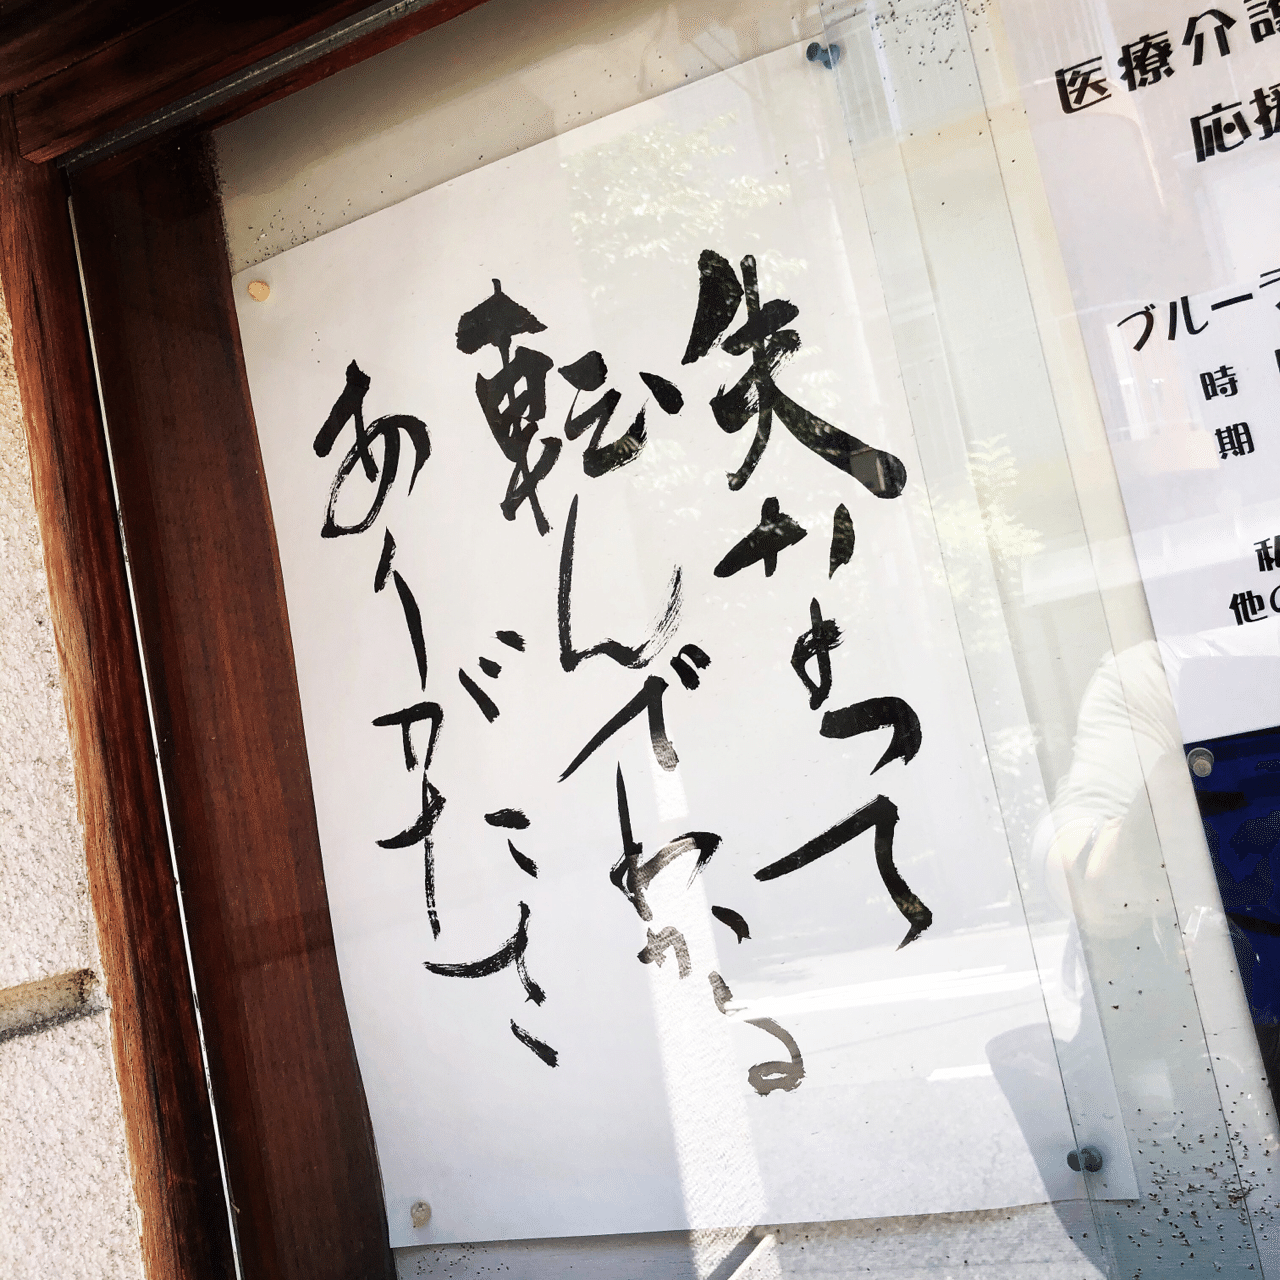 失なって
転んでわかる
ありがたさ
医療介護
応援
ブルーラ
時
期
私
他の